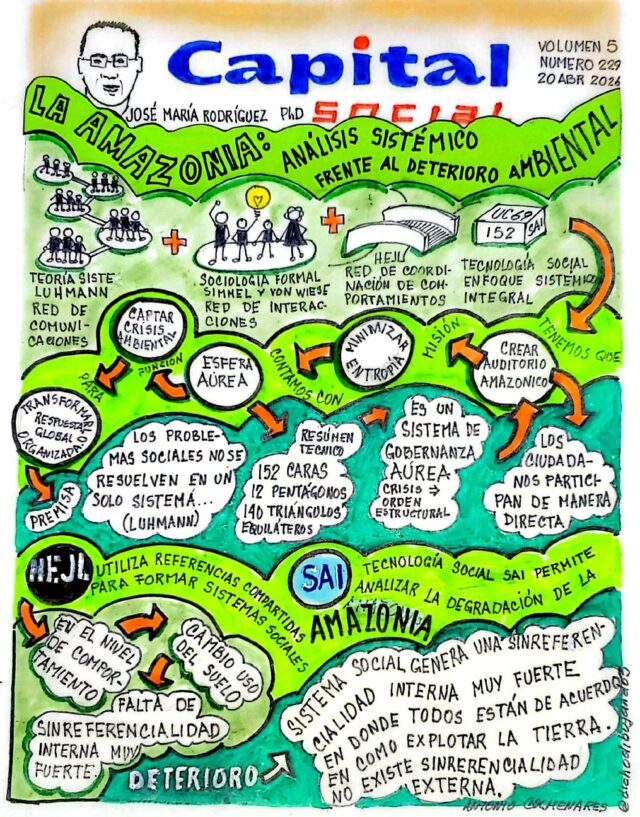 Capital
SOCIAL
VOLUMEN 5
NUMERO 229
20 ABR 2026
JOSÉ MARÍA RODRÍGUEZ PhD
LA AMAZONIA: ANÁLISIS SISTÉMICO
FRENTE AL DETERIORO AMBIENTAL
TEORÍA SISTE
LUHMANN
RED DE
COMUNI-
CACIONES
+
SOCIOLOGIA FORMAL
SIMMEL Y VON WIESE
RED DE INTERAC-
CIONES
+
HEJL
RED DE COORDI-
NACIÓN DE COM-
PORTAMIENTOS
UC69
152
SAI
TECNOLOGÍA SOCIAL
ENFOQUE SISTÉMICO
INTEGRAL
TENEMOS QUE
CREAR
AUDITORIO
AMAZONICO
MISIÓN
MINIMIZAR
ENTROPÍA
CONTAMOS CON
ESFERA
AÚREA
FUNCIÓN
CAPTAR
CRISIS
AMBIENTAL
PARA
TRANSFORMARLA
RESPUESTA
GLOBAL
ORGANIZADA
PREMISA
LOS PROBLE-
MAS SOCIALES NO SE
RESUELVEN EN UN
SOLO SISTEMÁ...
(LUHMANN)
RESÚMEN
TECNICO
152 CARAS
12 PENTÁGONOS
140 TRIÁNGULOS
EQUILÁTEROS
ES UN
SISTEMA DE
GOBERNANZA
AÚREA
CRISIS →
ORDEN
ESTRUCTURAL
LOS
CIUDADA-
NOS PARTICI-
PAN DE MANERA
DIRECTA
HEJL
UTILIZA REFERENCIAS COMPARTIDAS
PARA FORMAR SISTEMAS SOCIALES
SAI
TECNOLOGÍA SOCIAL SAI PERMITE
ANALIZAR LA DEGRADACIÓN DE LA
AMAZONIA
EN EL NIVEL
DE COMPOR-
TAMIENTO
CAMBIO USO
DEL SUELO
FALTA DE
SINREFERENCIALIDAD
INTERNA MUY
FUERTE.
DETERIORO
SISTEMA SOCIAL GENERA UNA SINREFEREN-
CIALIDAD INTERNA MUY FUERTE
EN DONDE TODOS ESTÁN DE ACUERDO
EN COMO EXPLOTAR LA TIERRA.
NO EXISTE SINRERENCIALIDAD
EXTERNA.
ANTONIO COLMENARES